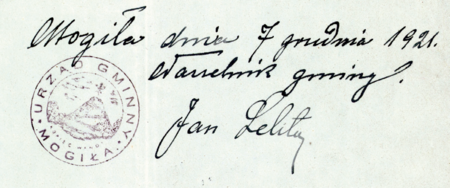 Mogiła dnia 7 grudnia 1921.
Naczelnik gminy.
Jan
URZĄD GMINNY
MOGIŁA.